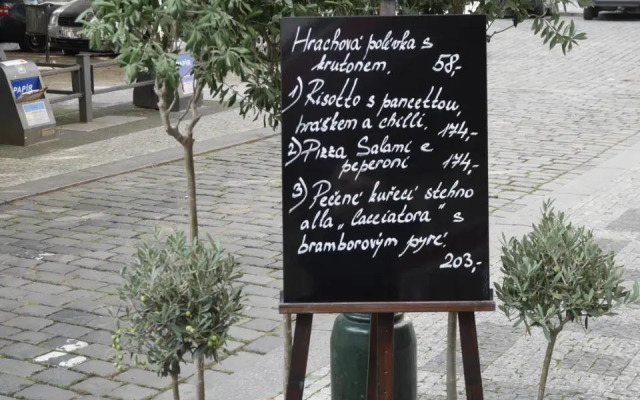 Hrachová polévka s
krutonem. 58,-
1) Risotto s pancettou,
hráškem a chilli. 174,-
2) Pizza Salami e
peperoni 174,-
3) Pečené kuřecí stehno
alla „Cacciatora" s
bramborovým pyré.
203,-
PAPÍR